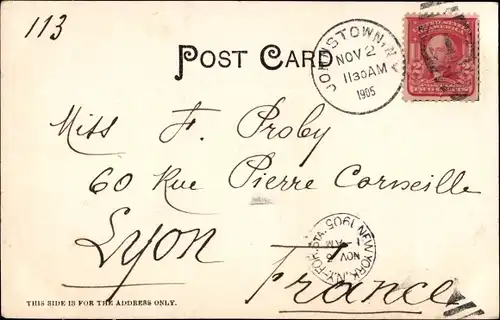 113
POST CARD
JOHNSTOWN, N.Y.
NOV 2
1130 AM
1905
UNITED STATES
OF AMERICA
Miss F. Proby
60 Rue Pierre Corneille
Lyon
France
NEW YORK, N.Y. FOR. STA. 1905
NOV
AM
THIS SIDE IS FOR THE ADDRESS ONLY.